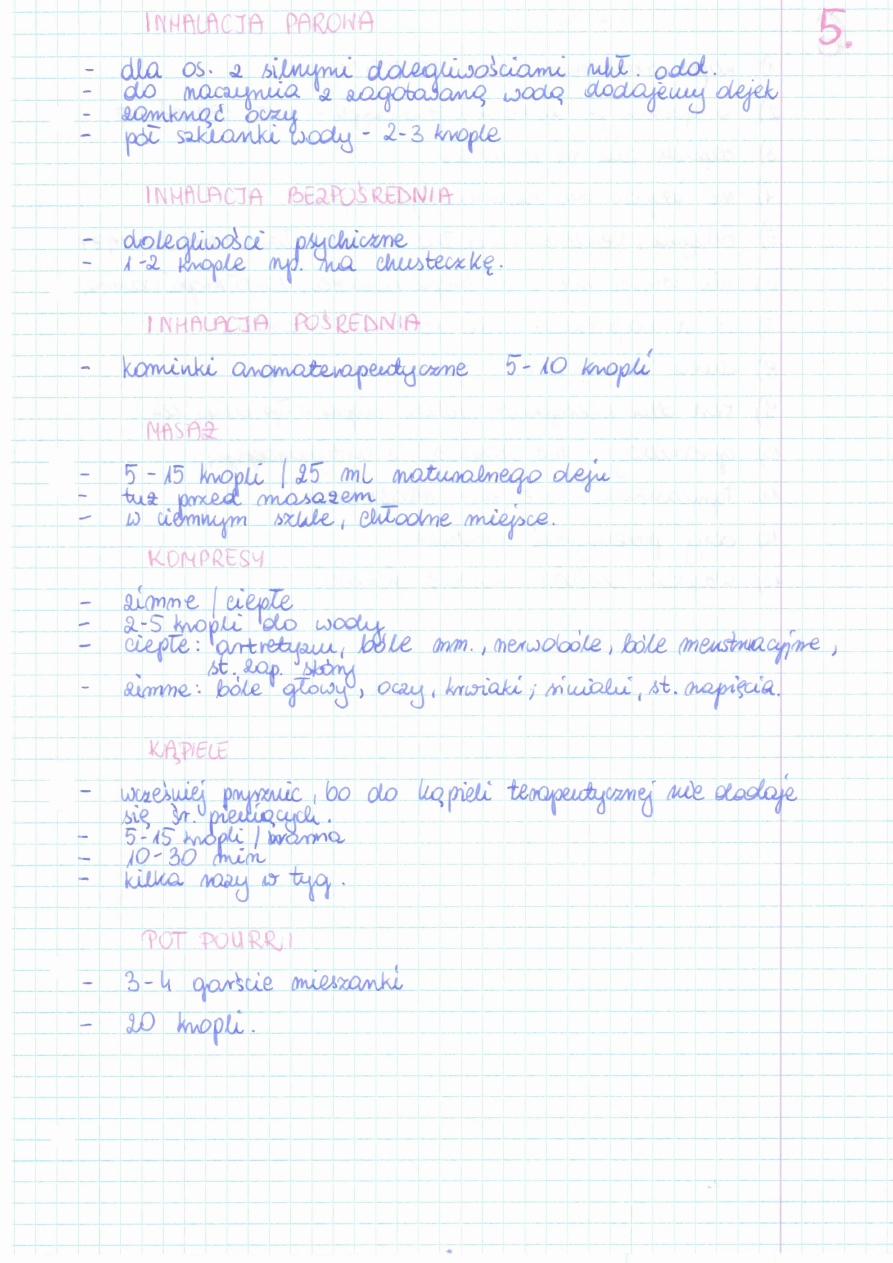 5.
INHALACJA PAROWA
- dla os. z silnymi dolegliwościami ukł. odd.
- do naczynia z zagotowaną wodą dodajemy olejek
- zamknąć oczy
- pół szklanki wody - 2-3 krople
INHALACJA BEZPOŚREDNIA
- dolegliwości psychiczne
- 1-2 krople np. na chusteczkę.
INHALACJA POŚREDNIA
- kominki aromaterapeutyczne 5-10 kropli
MASAŻ
- 5-15 kropli / 25 ml naturalnego oleju
- tuż przed masażem
- w ciemnym szkle, chłodne miejsce.
KOMPRESY
- zimne / ciepłe
- 2-5 kropli do wody
- ciepłe: artretyzm, bóle mm., nerwobóle, bóle menstruacyjne,
st. zap. skóry
- zimne: bóle głowy, oczy, krwiaki, siniaki, st. napięcia.
KĄPIELE
- wcześniej prysznic, bo do kąpieli terapeutycznej nie dodaje
się śr. pieniących.
- 5-15 kropli / wanna
- 10-30 min
- kilka razy w tyg.
POT POURRI
- 3-4 garście mieszanki
- 20 kropli.